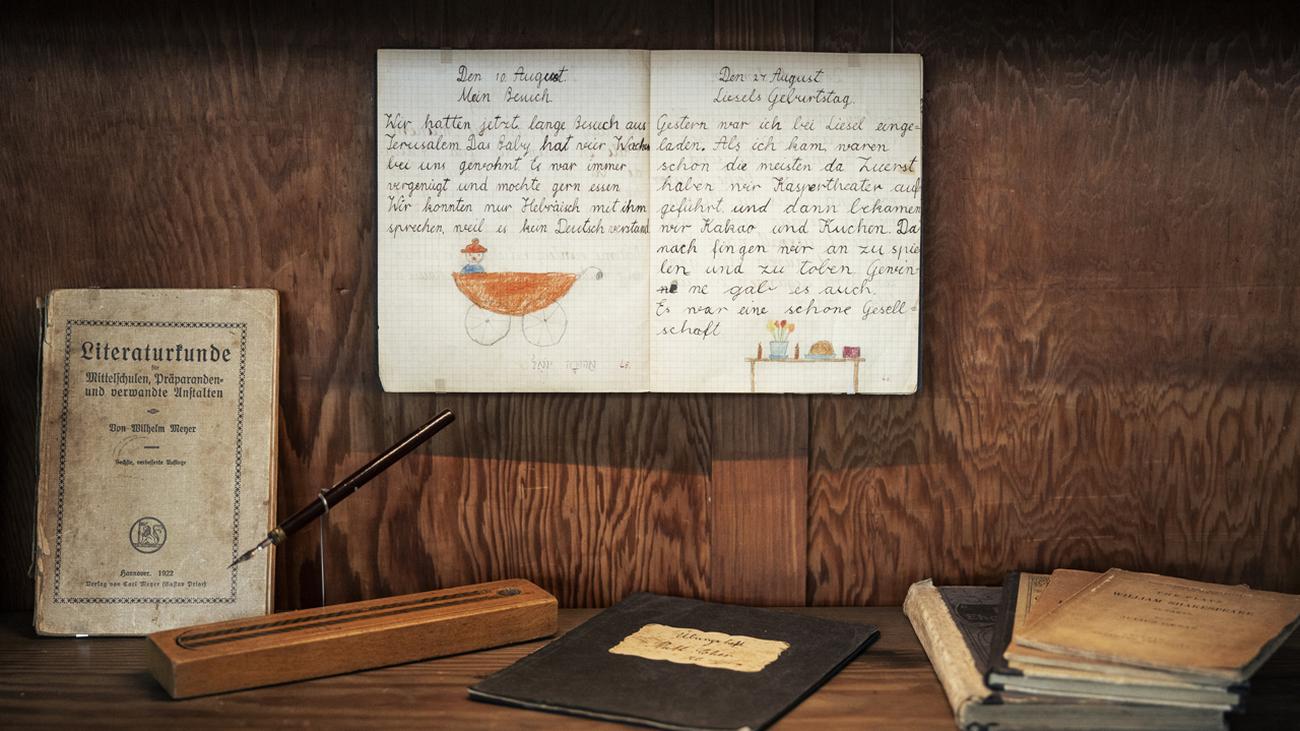 Den 10. August.
Mein Besuch.
Wir hatten jetzt lange Besuch aus
Jerusalem. Das Baby hat vier
bei uns gewohnt. Es war immer
vergnügt und mochte gern essen
Wir konnten nur Hebräisch mit ihm
sprechen, weil es kein Deutsch verstand
Den 27. August
Liesels Geburtstag.
Gestern war ich bei Liesel einge=
laden. Als ich kam, waren
schon die meisten da Zuerst
haben wir Kaspertheater auf
geführt, und dann bekamen
wir Kakao und Kuchen. Da
nach fingen wir an zu spie
len und zu toben Gewin=
ne gab es auch.
Es war eine schöne Gesell=
schaft
Literaturkunde
für
Mittelschulen, Präparanden-
und verwandte Anstalten
Von Wilhelm Meyer
Sechste, verbesserte Auflage
Hannover. 1922
Verlag von Carl Meyer (Gustav Prior)
Übungsheft
WILLIAM SHAKESPEARE